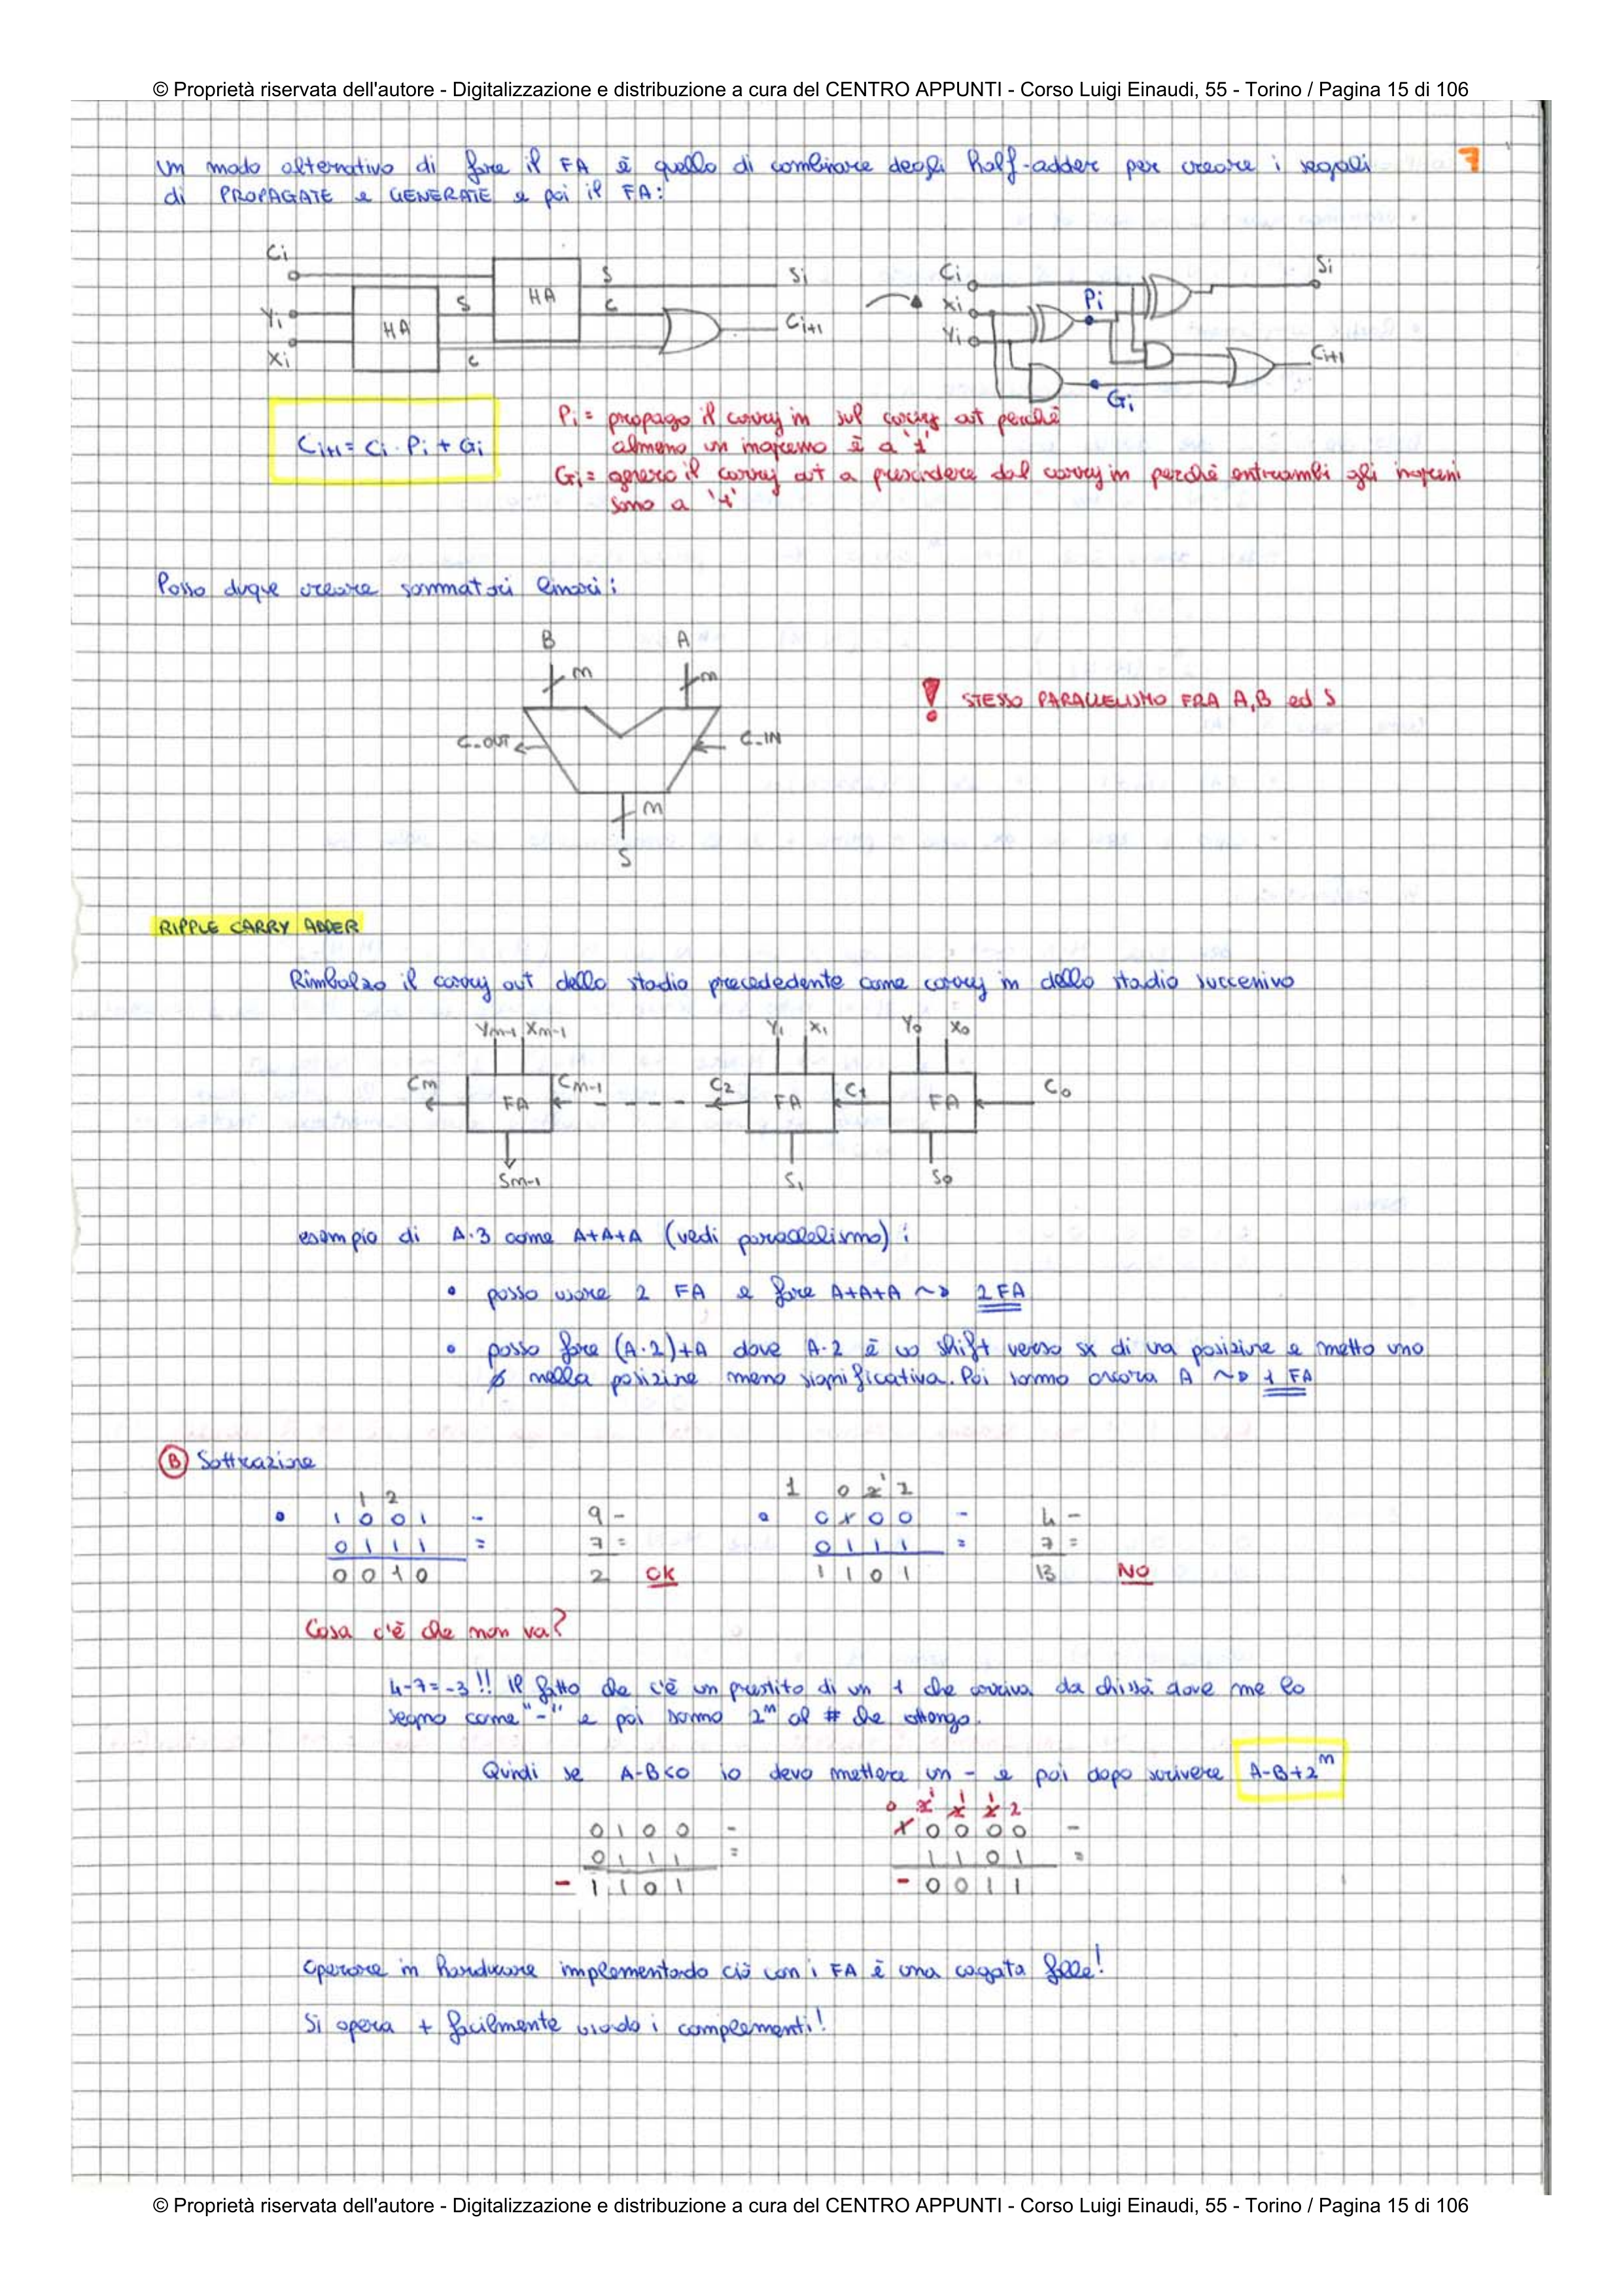 © Proprietà riservata dell'autore - Digitalizzazione e distribuzione a cura del CENTRO APPUNTI - Corso Luigi Einaudi, 55 - Torino / Pagina 15 di 106
7
Un modo alternativo di fare il FA è quello di combinare degli half-adder per creare i segnali
di PROPAGATE e GENERATE e poi il FA:
Ci
Yi
Xi
HA
S
C
HA
S
C
Si
Ci+1
Ci
Xi
Yi
Pi
Gi
Si
Ci+1
Ci+1 = Ci · Pi + Gi
Pi = propago il carry in sul carry out perchè
almeno un ingresso è a '1'
Gi = genero il carry out a prescindere dal carry in perchè entrambi gli ingressi
sono a '1'
Posso duque creare sommatori binari:
B A
m m
C-OUT C-IN
m
S
! STESSO PARALLELISMO FRA A,B ed S
RIPPLE CARRY ADDER
Rimbalzo il carry out dello stadio precededente come carry in dello stadio successivo
Ym-1 Xm-1 Y1 X1 Y0 X0
Cm FA Cm-1 C2 FA C1 FA C0
Sm-1 S1 S0
esempio di A·3 come A+A+A (vedi parallelismo):
• posso usare 2 FA e fare A+A+A ~> 2 FA
• posso fare (A·2)+A dove A·2 è uno shift verso sx di una posizione e metto uno
0 nella posizione meno significativa. Poi sommo ancora A ~> 1 FA
B Sottrazione
1 2
• 1 0 0 1 -
0 1 1 1 =
0 0 1 0
9 -
7 =
2 OK
1 0 2 1 2
• 0 1 0 0 -
0 1 1 1 =
1 1 0 1
4 -
7 =
13 NO
Cosa c'è che non va?
4-7=-3!! Il fatto che c'è un prestito di un 1 che arriva da chissà dove me lo
segno come "-" e poi sommo 2^m al # che ottengo.
Quindi se A-B<0 io devo mettere un - e poi dopo scrivere A-B+2^m
0 1 0 0 -
0 1 1 1 =
- 1 1 0 1
0 2 1 2 1 2 1 2
1 0 0 0 0 -
1 1 0 1 =
- 0 0 1 1
Operare in hardware implementando ciò con i FA è una cagata folle!
Si opera + facilmente usando i complementi!
© Proprietà riservata dell'autore - Digitalizzazione e distribuzione a cura del CENTRO APPUNTI - Corso Luigi Einaudi, 55 - Torino / Pagina 15 di 106